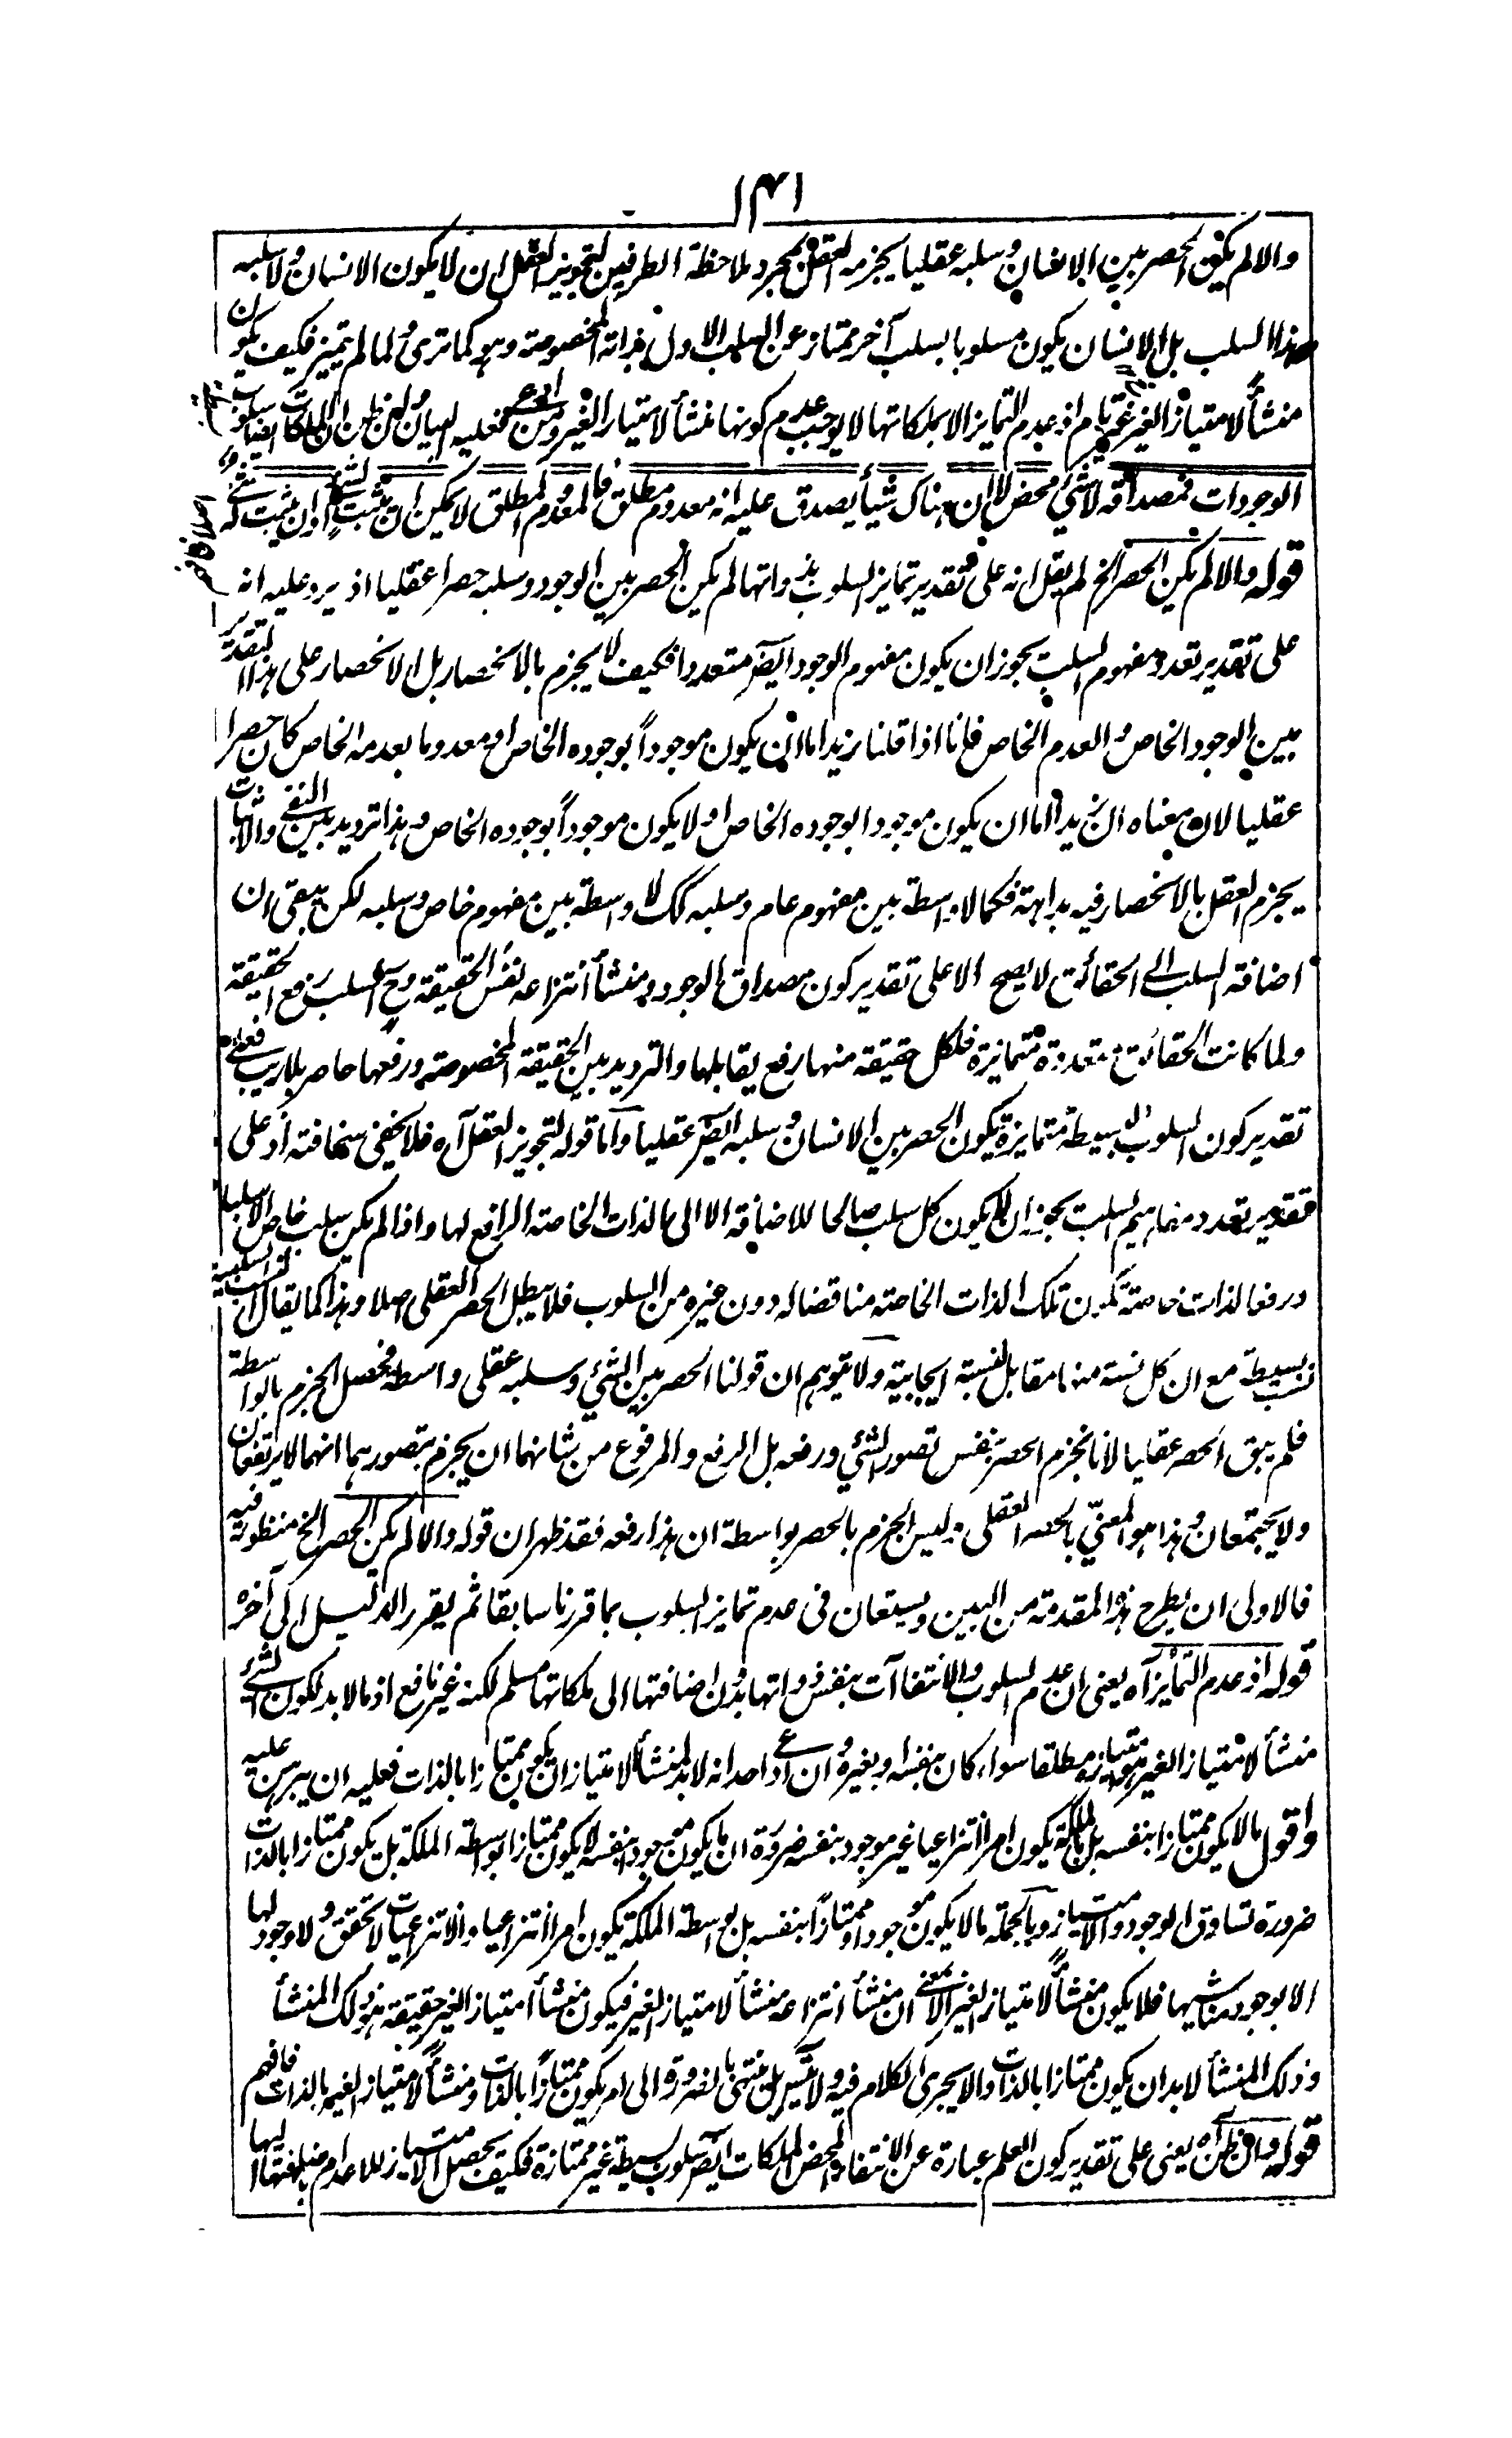 ١٤١
والا لم يكن الحصر بين الانسان وسلبه عقليا يجزم العقل بمجرد ملاحظة الطرفين لتجويز العقل ان لا يكون الانسان ولا سلبه
هذا السلب بل الانسان يكون مسلوبا بسلب آخر ممتاز عن السلب الاول بذاته المخصوصة وهو كما ترى ولما لم تتميز فكيف يكون
منشأ لامتياز الغير غير تام اذ عدم التمايز الا بملكاتها لا يوجب عدم كونها منشأ لامتياز الغير ومن ادعى فعليه البيان ومن ظن ان الملكات ايضا سلوب
الوجودات فمصداقه لا شيء محض لا ان هناك شيئا يصدق عليه انه معدوم مطلق فالمعدوم المطلق لا يمكن ان يثبت لشيء او ان يثبت له شيء
اصلا فافهم
قوله والا لم يكن الحصر الخ لم يقل انه على تقدير تمايز السلوب بذواتها لم يكن الحصر بين الوجود وسلبه حصرا عقليا اذ يرد عليه انه
على تقدير تعدد مفهوم السلب يجوز ان يكون مفهوم الوجود ايضر متعددا فكيف لا يجزم بالانحصار بل الانحصار على هذا التقدير
بين الوجود الخاص والعدم الخاص فانا اذا قلنا زيد اما ان يكون موجوداً بوجوده الخاص او معدوما بعدمه الخاص كان حصرا
عقليا لان معناه ان زيدا اما ان يكون موجودا بوجوده الخاص او لا يكون موجوداً بوجوده الخاص وهذا ترديد بين النفي والاثبات
يجزم العقل بالانحصار فيه بداهة فكما لا واسطة بين مفهوم عام وسلبه كك لا واسطة بين مفهوم خاص وسلبه لكن يبقى ان
اضافة السلب الى الحقائق لا يصح الا على تقدير كون مصداق الوجود ومنشأ انتزاعه نفس الحقيقة وح السلب رفع الحقيقة
ولما كانت الحقائق متعددة متمايزة فلكل حقيقة منها رفع يقابلها والترديد بين الحقيقة المخصوصة ورفعها حاصر بلا ريب فعلى
تقدير كون السلوب البسيطة متمايزة يكون الحصر بين الانسان وسلبه ايضر عقليا واما قوله لتجويز العقل آه فلا يخفى سخافته اذ على
تقدير تعدد مفاهيم السلب يجوز ان لا يكون كل سلب صالحا للاضافة الا الى الذات الخاصة الرافع لها واذا لم يكن سلب خاص الا سلبا
ورفعا لذات خاصة تكون تلك الذات الخاصة مناقضا له دون غيره من السلوب فلا يبطل الحصر العقلي اصلا وهذا كما يقال ان النسب السلبية
بسيطة مع ان كل نسبة منها مقابل لنسبة ايجابية ولا يتوهم ان قولنا الحصر بين الشيء وسلبه عقلي واسطة فحصل الجزم بالواسطة
فلم يبق الحصر عقليا لانا نجزم الحصر بنفس تصور الشيء ورفعه بل الرفع والمرفوع من شانهما ان يجزم بتصورهما انهما لا يرتفعان
ولا يجتمعان وهذا هو المعنيّ بالحصر العقلي وليس الجزم بالحصر بواسطة ان هذا رفعه فقد ظهر ان قوله والا لم يكن الحصر الخ منظور فيه
فالاولى ان يطرح هذه المقدمة من البين ويستعان في عدم تمايز السلوب بما قررنا سابقا ثم يقرر الدليل الى آخره
قوله اذ عدم التمايز آه يعني ان عدم السلوب والانتفاآت بنفس ذواتها بدون اضافتها الى ملكاتها مسلم لكنه غير نافع اذ ما لا بد لكون الشيء
منشأ لامتياز الغير تميزه مطلقا سواء كان بنفسه او بغيره وان ادعى احد انه لا بد لمنشأ الامتياز ان يكون ممتازا بالذات فعليه ان يبرهن عليه
واقول ما لا يكون ممتازا بنفسه بل بالملكة يكون امرا انتزاعيا غير موجود بنفسه ضرورة ان ما يكون موجودا بنفسه لا يكون ممتازا بواسطة الملكة بل يكون ممتازا بالذات
ضرورة تساوق الوجود والامتياز وبالجملة ما لا يكون موجودا وممتازا بنفسه بل بواسطة الملكة يكون امرا انتزاعيا والانتزاعيات لا تحقق ولا وجود لها
الا بوجود مناشيها فلا يكون منشأ لامتياز الغير الا بمعنى ان منشأ انتزاعه منشأ لامتياز الغير فيكون منشأ امتياز الغير حقيقة هو ذلك المنشأ
وذلك المنشأ لا بد ان يكون ممتازا بالذات والا يجري الكلام فيه ولا يتسر بل ينتهي بالضرورة الى امر يكون ممتازا بالذات ومنشأ لامتياز الغير بالذات فافهم
قوله ومن ظن آه يعني على تقدير كون العلم عبارة عن الانتفاء المحض الملكات ايضر سلوب بسيطة غير ممتازة فكيف يحصل الامتياز للاعدام باضافتها اليها